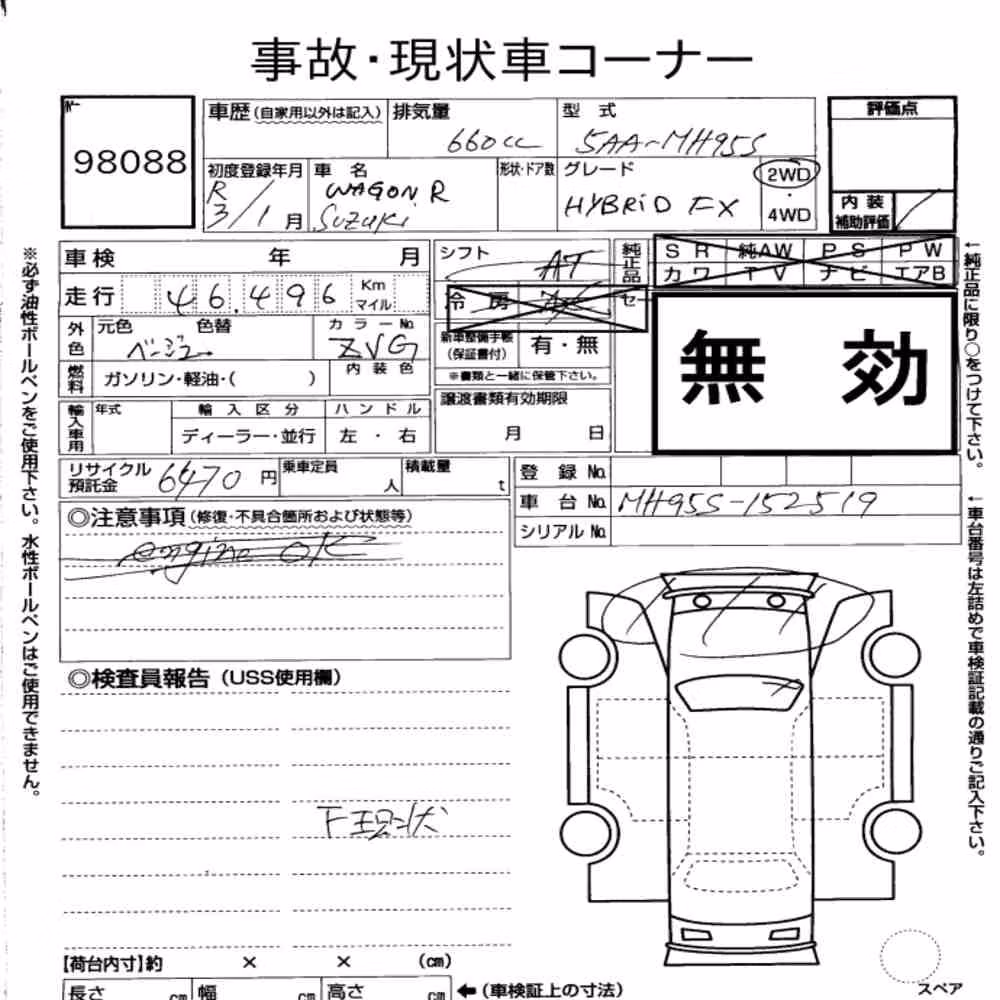 事故・現状車コーナー
98088
車歴(自家用以外は記入) 排気量 型 式 評価点
660cc 5AA-MH95S
初度登録年月 車 名 形状・ドア数 グレード 2WD
R 3/1月 WAGON R HYBRID FX ・
SUZUKi 4WD
内 装
補助評価
車検 年 月
シフト AT
純正品
S R 純AW P S P W
カワ T V ナビ エアB
走行 46,496 Km
マイル
冷 房 セ
外色 元色 色替 カラーNo.
ベージュ ZVG
新車整備手帳
(保証書付) 有・無
※書類と一緒に保管下さい。
無 効
燃料 ガソリン・軽油・( ) 内 装 色
輸入車用 年式 輸 入 区 分 ハ ン ド ル
ディーラー・並行 左 ・ 右
譲渡書類有効期限
月 日
リサイクル
預託金 6470 円 乗車定員 人 積載量 t
登 録 No.
車 台 No. MH95S-152519
シリアル No.
◎注意事項(修復・不具合箇所および状態等)
engine OK
◎検査員報告(USS使用欄)
下現状
【荷台内寸】約 × × (cm)
長さ cm 幅 cm 高さ cm ←(車検証上の寸法)
スペア
※必ず油性ボールペンをご使用下さい。水性ボールペンはご使用できません。
←純正品に限り○をつけて下さい。
←車台番号は左詰めで車検証記載の通りご記入下さい。